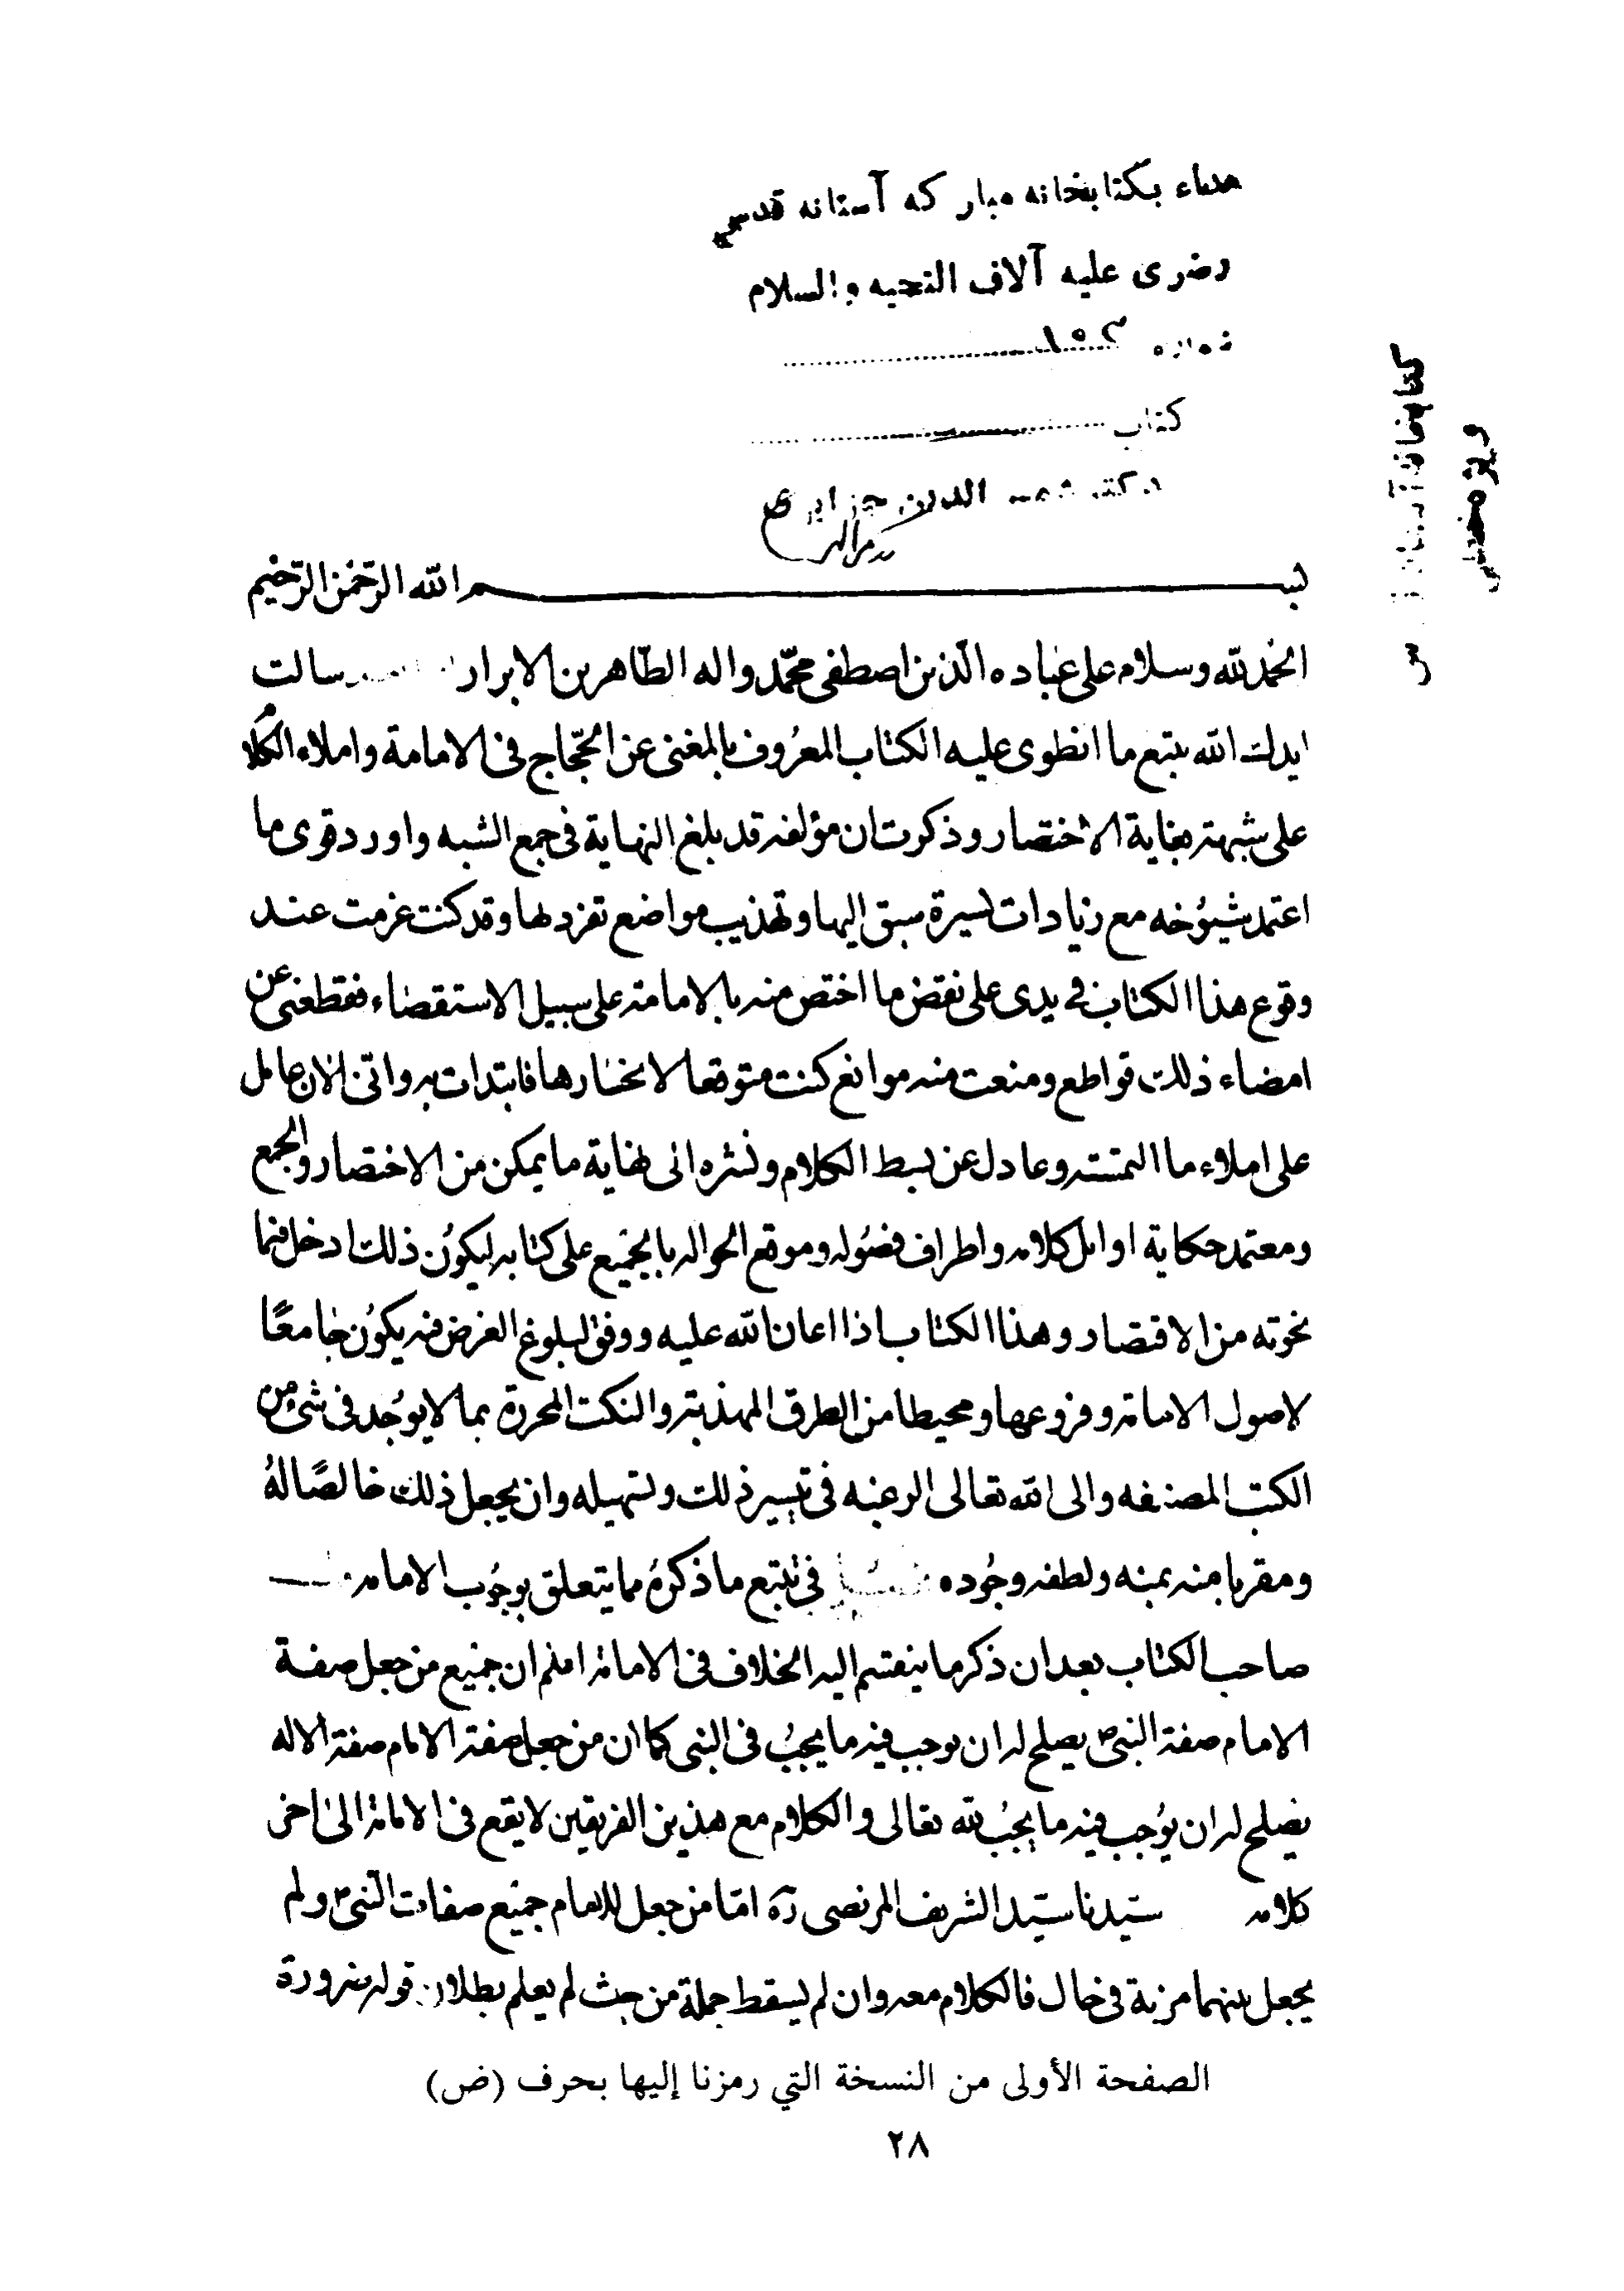 اهداء بكتابخانه مباركه آستانه قدسى
رضوى عليه آلاف التحيه والسلام
شماره
كتاب
دكتر شمس الدين جزايرى
بسم الله الرحمن الرحيم
الحمد لله وسلام على عباده الذين اصطفى محمد واله الطاهرين الابرار سالت
ايدك الله بتتبع ما انطوى عليه الكتاب المعروف بالمغنى عن الحجاج فى الامامة واملاء الكلام
على شبهته بغاية الاختصار وذكرت ان مؤلفه قد بلغ النهاية فى جمع الشبه واورد قوى ما
اعتمد شيوخه مع زيادات يسيرة سبق اليها وتهذيب مواضع تفرد لها وقد كنت عزمت عند
وقوع هذا الكتاب فى يدى على نقض ما اختص منه بالامامة على سبيل الاستقصاء فقطعنى عن
امضاء ذلك قواطع ومنعت منه موانع كنت متوقعا لانحسارها فابتدات به وانى الان عامل
على املاء ما التمسته وعادل عن بسط الكلام ونشره الى نهاية ما يمكن من الاختصار والجمع
ومعتمد حكاية اوايل كلامه واطراف فصوله وموقع الحواله بالجميع على كتابه ليكون ذلك ادخل فيما
نحوته من الاقتصار وهذا الكتاب اذا اعان الله عليه ووفق لبلوغ الغرض فيه يكون جامعًا
لاصول الامامة وفروعها ومحيطا من الطرق المهذبة والنكت المحررة بما لا يوجد فى شئ من
الكتب المصنفه والى الله تعالى الرغبه فى تيسير ذلك وتسهيله وان يجعل ذلك خالصًا له
ومقربا منه بمنه ولطفه وجوده فى تتبع ما ذكره مما يتعلق بوجوب الامامه
صاحب الكتاب بعد ان ذكر ما ينقسم اليه الخلاف فى الامامة اعلم ان جميع من جعل صفة
الامام صفة النبى ص يصلح له ان يوجب فيه ما يجب فى النبى كما ان من جعل صفة الامام صفة الاله
يصلح له ان يوجب فيه ما يجب لله تعالى والكلام مع هذين الفريقين لا يقع فى الامامة الى اخر
كلامه سيدنا سيد الشريف المرتضى ره اما من جعل للامام جميع صفات النبى ص ولم
يجعل بينهما مزية فى حال فالكلام معه وان لم يسقط جملة من حيث لم يعلم بطلان قوله ضرورة
الصفحة الأولى من النسخة التي رمزنا إليها بحرف (ض)
٢٨